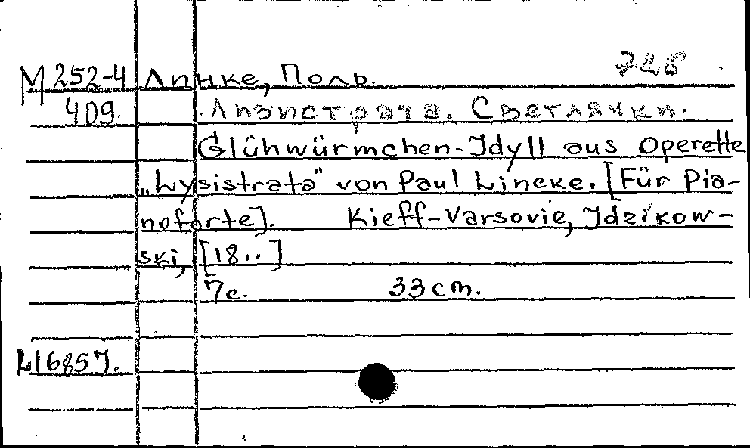 М 252-4 Линке, Поль.
409 Лизистрата. Светлячки.
Glühwürmchen-Idyll aus Operette
„Lysistrata" von Paul Lincke. [Für Pia-
noforte]. Kieff-Varsovie, Idzikow-
ski, [18..]
7 c. 33 cm.